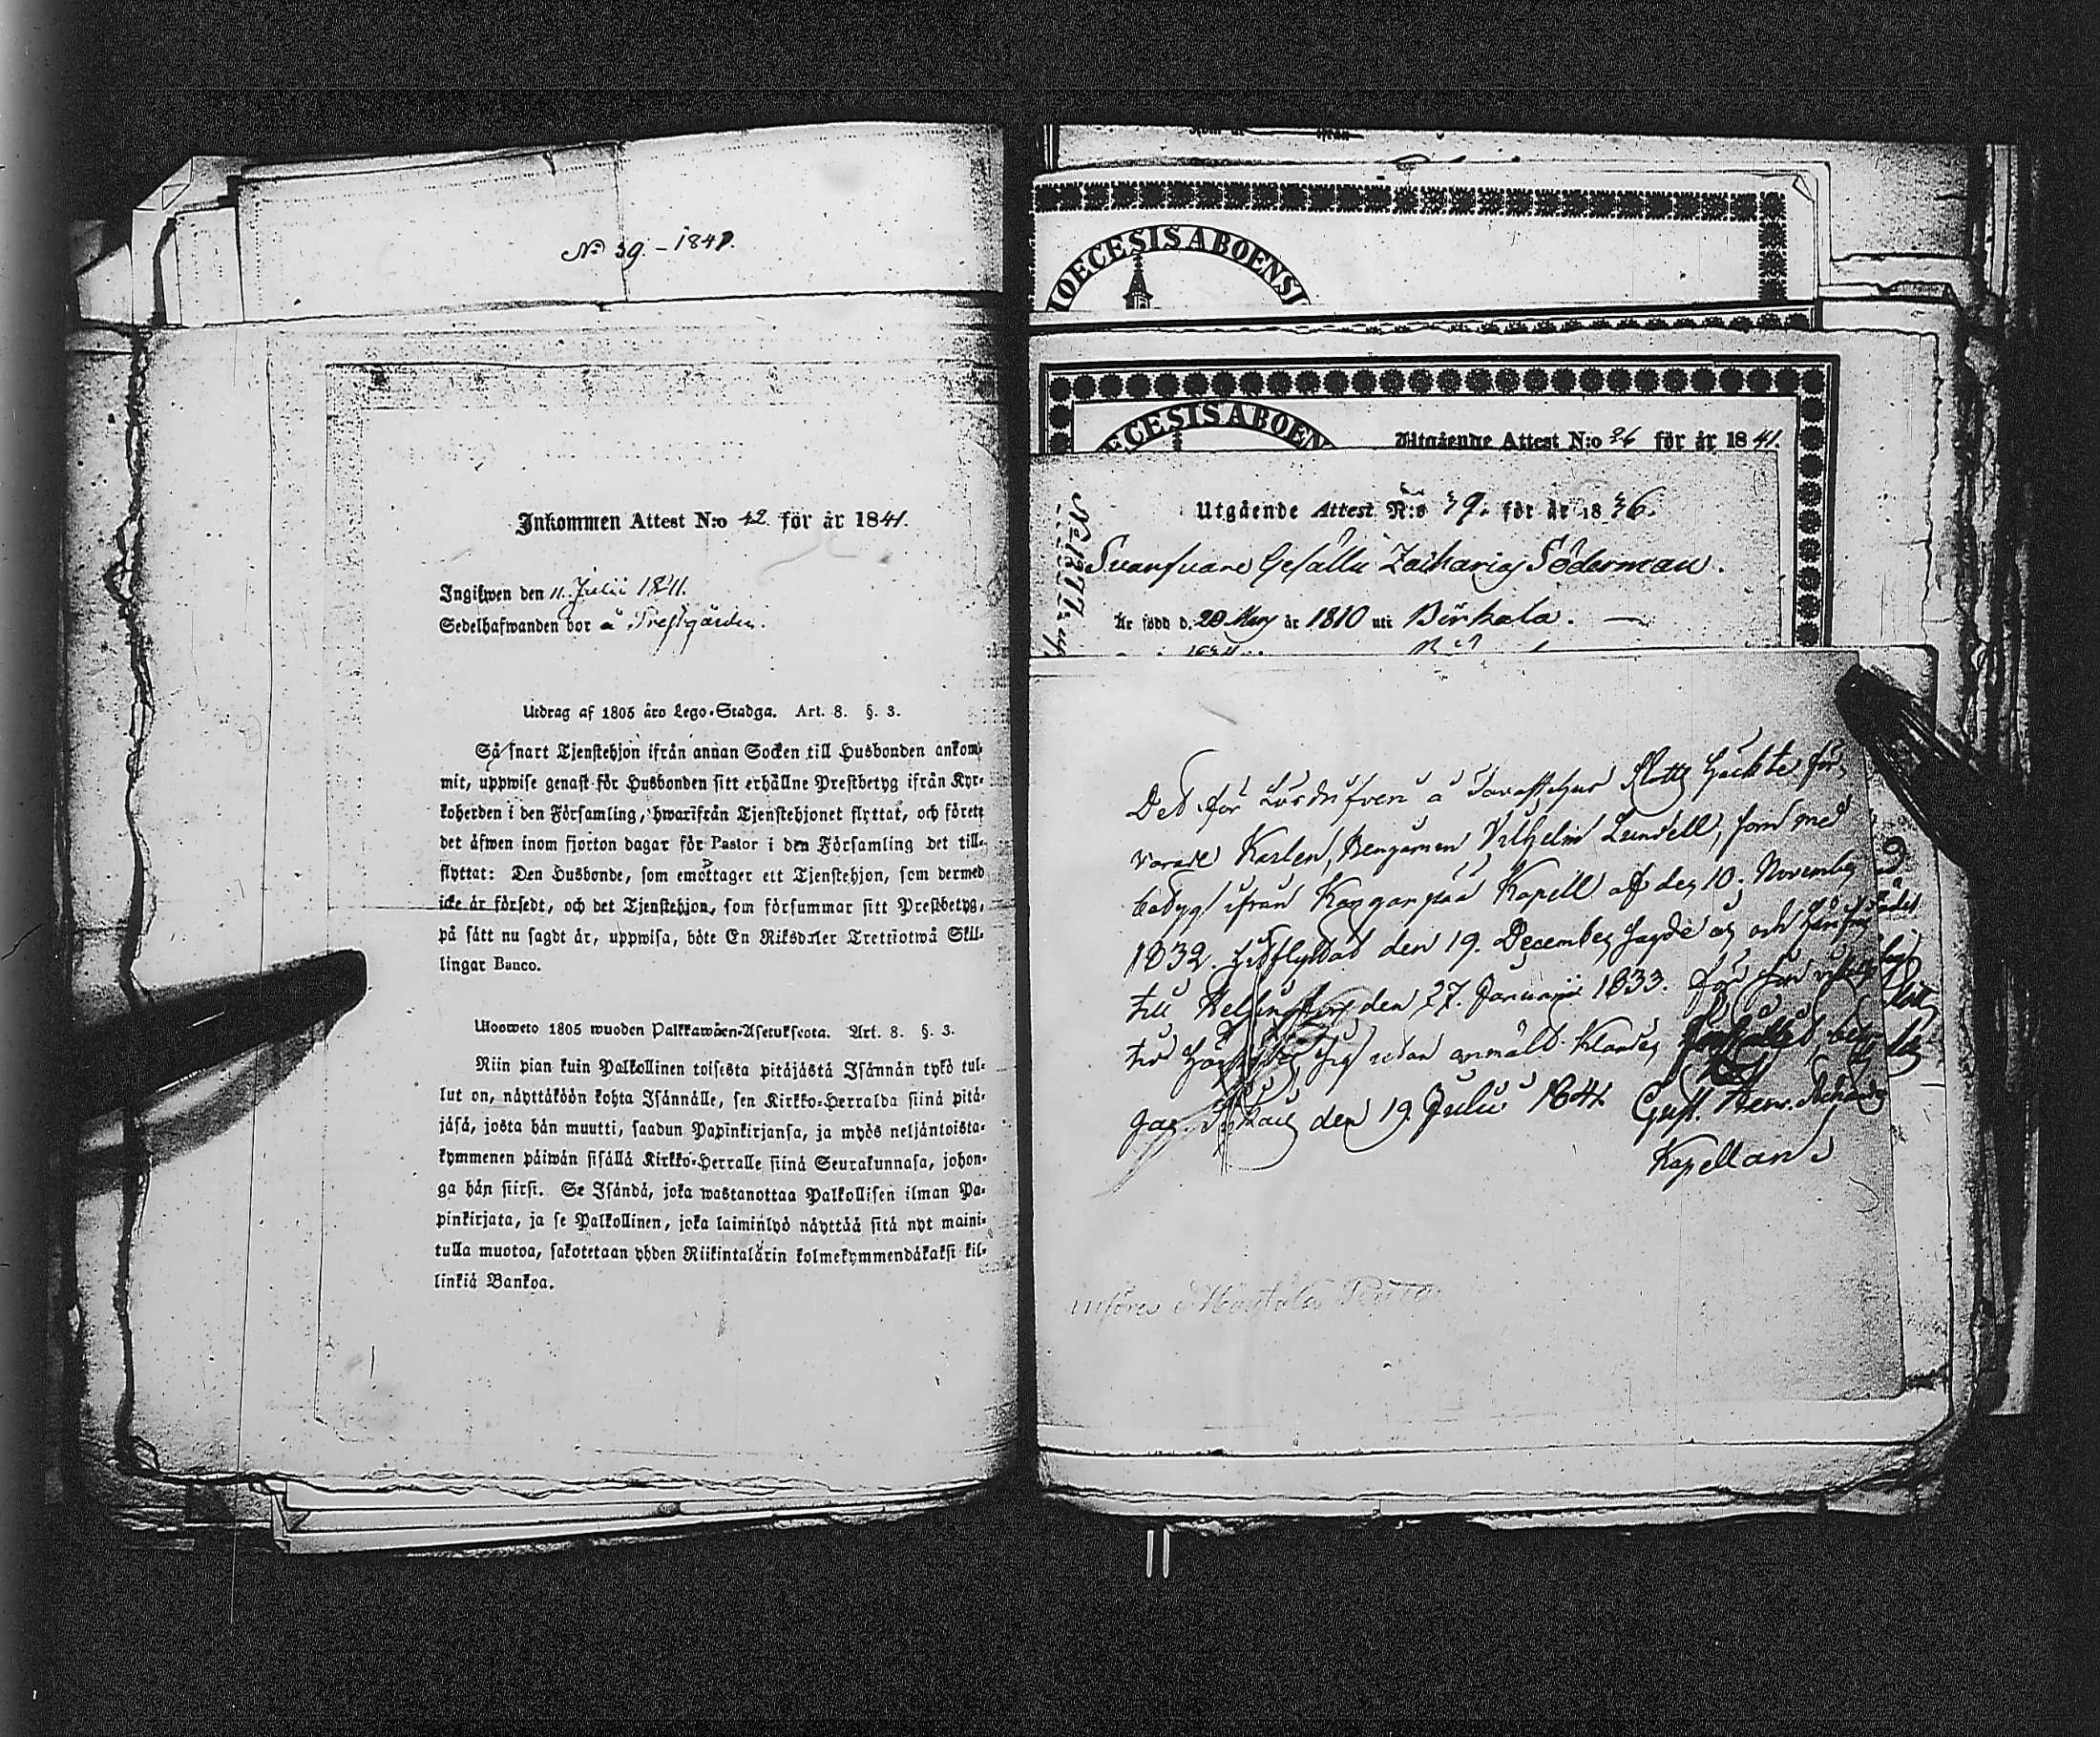 No 39. - 1841.
Inkommen Attest N:o 42. för år 1841.
Ingifwen den 11. Julii 1841.
Sedelhafwanden bor å Prestgården.
Utdrag af 1805 års Lego-Stadga. Art. 8. §. 3.
Så snart Tjenstehjon ifrån annan Socken till Husbonden ankom-
mit, uppwise genast för Husbonden sitt erhållne Prestbetyg ifrån Kyr-
koherden i den Församling, hwarifrån Tjenstehjonet flyttat, och förete
det äfwen inom fjorton dagar för Pastor i den Församling det till-
flyttat: Den Husbonde, som emottager ett Tjenstehjon, som dermed
icke är försedt, och det Tjenstehjon, som försummar sitt Prestbetyg,
på sätt nu sagdt är, uppwisa, böte En Riksdaler Trettiotwå Skil-
lingar Banco.
Ulosweto 1805 wuoden Palkkawäen-Asetuksesta. Art. 8. §. 3.
Niin pian kuin Palkollinen toisesta pitäjästä Isännän tykö tul-
lut on, näyttäköön kohta Isännälle, sen Kirkko-Herralda siinä pitä-
jäsä, josta hän muutti, saadun Papinkirjansa, ja myös neljäntoista-
kymmenen päiwän sisällä Kirkko-Herralle siinä Seurakunnasa, johon-
ga hän siirsi. Se Isändä, joka wastanottaa Palkollisen ilman Pa-
pinkirjata, ja se Palkollinen, joka laiminlyö näyttää sitä nyt maini-
tulla muotoa, sakotetaan yhden Riikintalärin kolmekymmendäkaksi kil-
linkiä Bankoa.
DIOECESIS ABOENSI
ECESIS ABOEN
Utgående Attest N:o 26 för år 1841.
Utgående Attest N:o 39. för år 1836.
Svarfvare Gesällen Zacharias Söderman.
Är född d. 20 Maij år 1810 uti Birkala.
Det för Lösdrifveri å Tavastehus Slotts Häckte för-
varade Karlen, Benjamin Vilhelm Lundell, som med
betyg ifrån Kanganpää Kapell af den 10. November
1832. hitflyttat den 19. December sagde år och härifrån
till Helsingfors den 27. Januarii 1833.
den 19. Julii 1841. Gust. Henr.
Kapellan